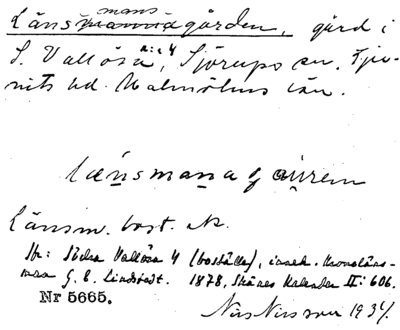 mans
Länsmannagården, gård i
n:o 4
S. Vallösa, Sjörups sn. Ljunits hd. Malmöhus län.
länsmanagåuren
Länsm. bost.
Str: Södra Vallösa 4 (boställe), inneh. Kronoläns-
man G. E. Lindstedt. 1878, Skånes Kalender II: 606.
Nr 5665.
Nils Nilsson 1934.